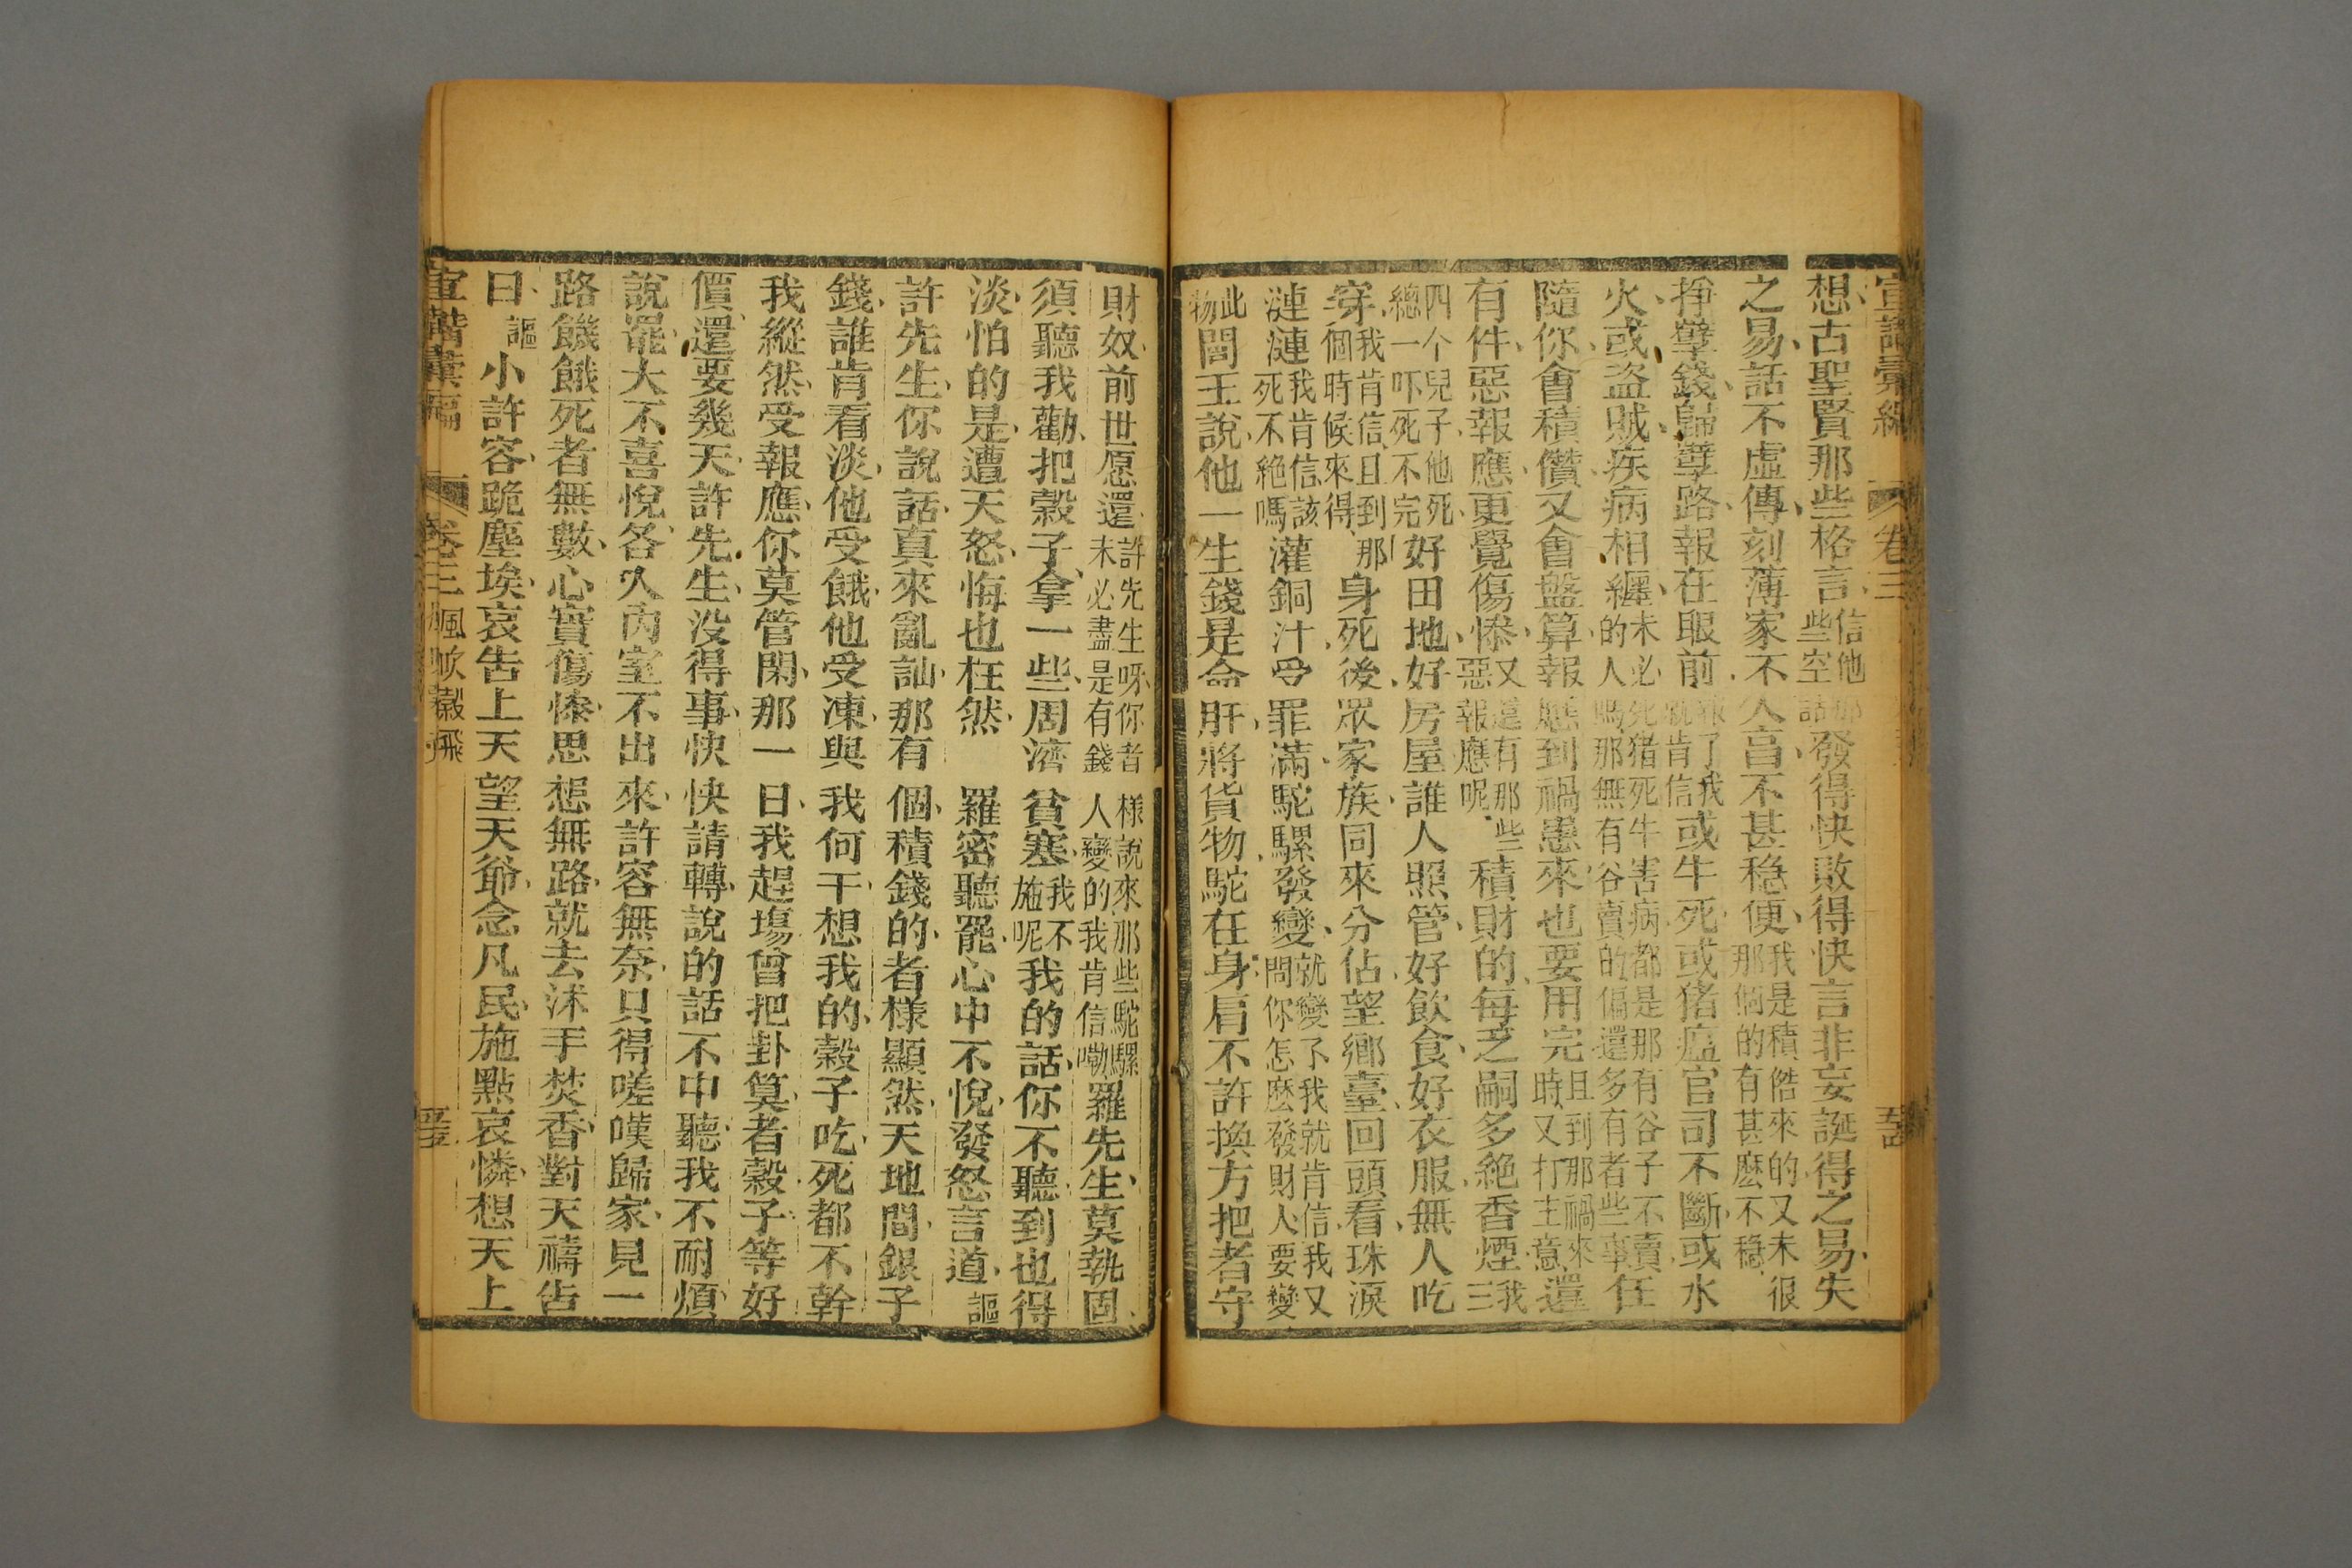 宣講彙編 卷三
想古聖賢那些格言信他那些空話發得快敗得快言非妄誕得之易失
之易話不虛傳刻薄家不久昌不甚稳便我是積儹來的又未很那個的有甚麽不穩
掙孽錢歸孽路報在眼前報了我就肯信或牛死或猪瘟官司不斷或水
火或盜賊疾病相纏未必死猪死牛害病都是那有谷子不賣的人嗎那無有谷賣的偏還多有者些事任
隨你會積儹又會盤算報應到禍患來也要用完且到那禍來時又打主意還
有件惡報應更覺傷慘又還有那些惡報應呢積財的每乏嗣多絶香煙我三
四个兒子他死總一吓死不完好田地好房屋誰人照管好飲食好衣服無人吃
穿我肯信且到那個時候來得身死後眾家族同來分佔望鄉臺回頭看珠淚
漣漣我肯信該死不絶嗎灌銅汁受罪滿駝騾發變就變了我就肯信我又問你怎麽發財人要變
此物閻王說他一生錢是命肝將貨物駝在身肩不許換方把者守
財奴前世愿還許先生呀你者樣說來那些駝騾未必盡是有錢人變的我肯信嘞羅先生莫執固
須聽我勸把穀子拿一些周濟貧寒我不施呢我的話你不聽到也得
淡怕的是遭天怒悔也枉然 羅密聽罷心中不悅發怒言道謳
許先生你說話真來亂訕那有個積錢的者樣顯然天地間銀子
錢誰肯看淡他受餓他受凍與我何干想我的穀子吃死都不幹
我縱然受報應你莫管閑那一日我趕場曾把卦算者穀子等好
價還要幾天許先生没得事快快請轉說的話不中聽我不耐煩
說罷大不喜悅各入内室不出來許容無奈只得嗟嘆歸家見一
路饑餓死者無數心實傷慘思想無路就去沐手焚香對天禱告
曰謳小許容跪塵埃哀告上天望天爺念凡民施點哀憐想天上
卷三 風吹穀飛